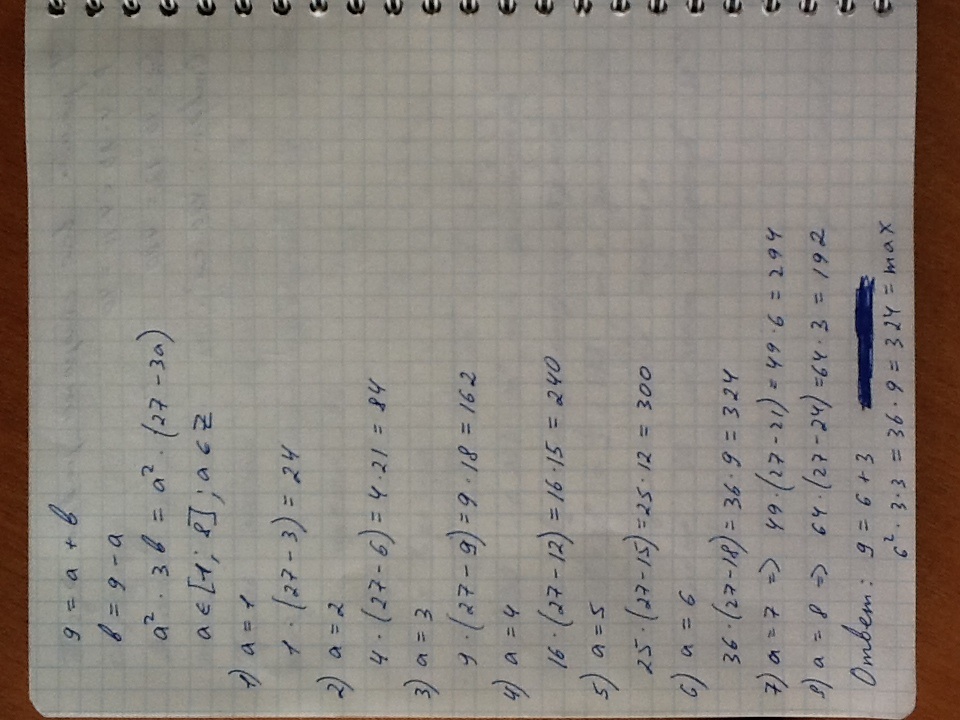 9 = a + b
b = 9 - a
a² · 3b = a² · (27 - 3a)
a ∈ [1; 8]; a ∈ Z
1) a = 1
1 · (27 - 3) = 24
2) a = 2
4 · (27 - 6) = 4 · 21 = 84
3) a = 3
9 · (27 - 9) = 9 · 18 = 162
4) a = 4
16 · (27 - 12) = 16 · 15 = 240
5) a = 5
25 · (27 - 15) = 25 · 12 = 300
6) a = 6
36 · (27 - 18) = 36 · 9 = 324
7) a = 7 => 49 · (27 - 21) = 49 · 6 = 294
8) a = 8 => 64 · (27 - 24) = 64 · 3 = 192
Ответ: 9 = 6 + 3
6² · 3 · 3 = 36 · 9 = 324 = max